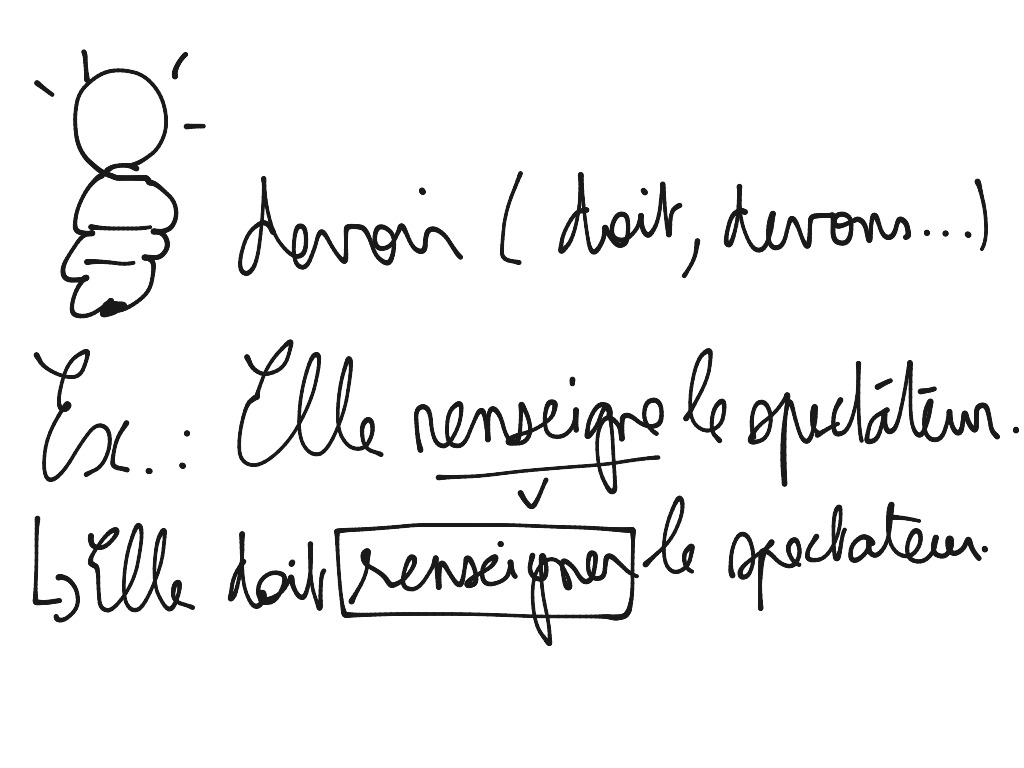 devoir ( doit, devons...)
Ex. : Elle renseigne le spectateur.
Elle doit renseigner le spectateur.